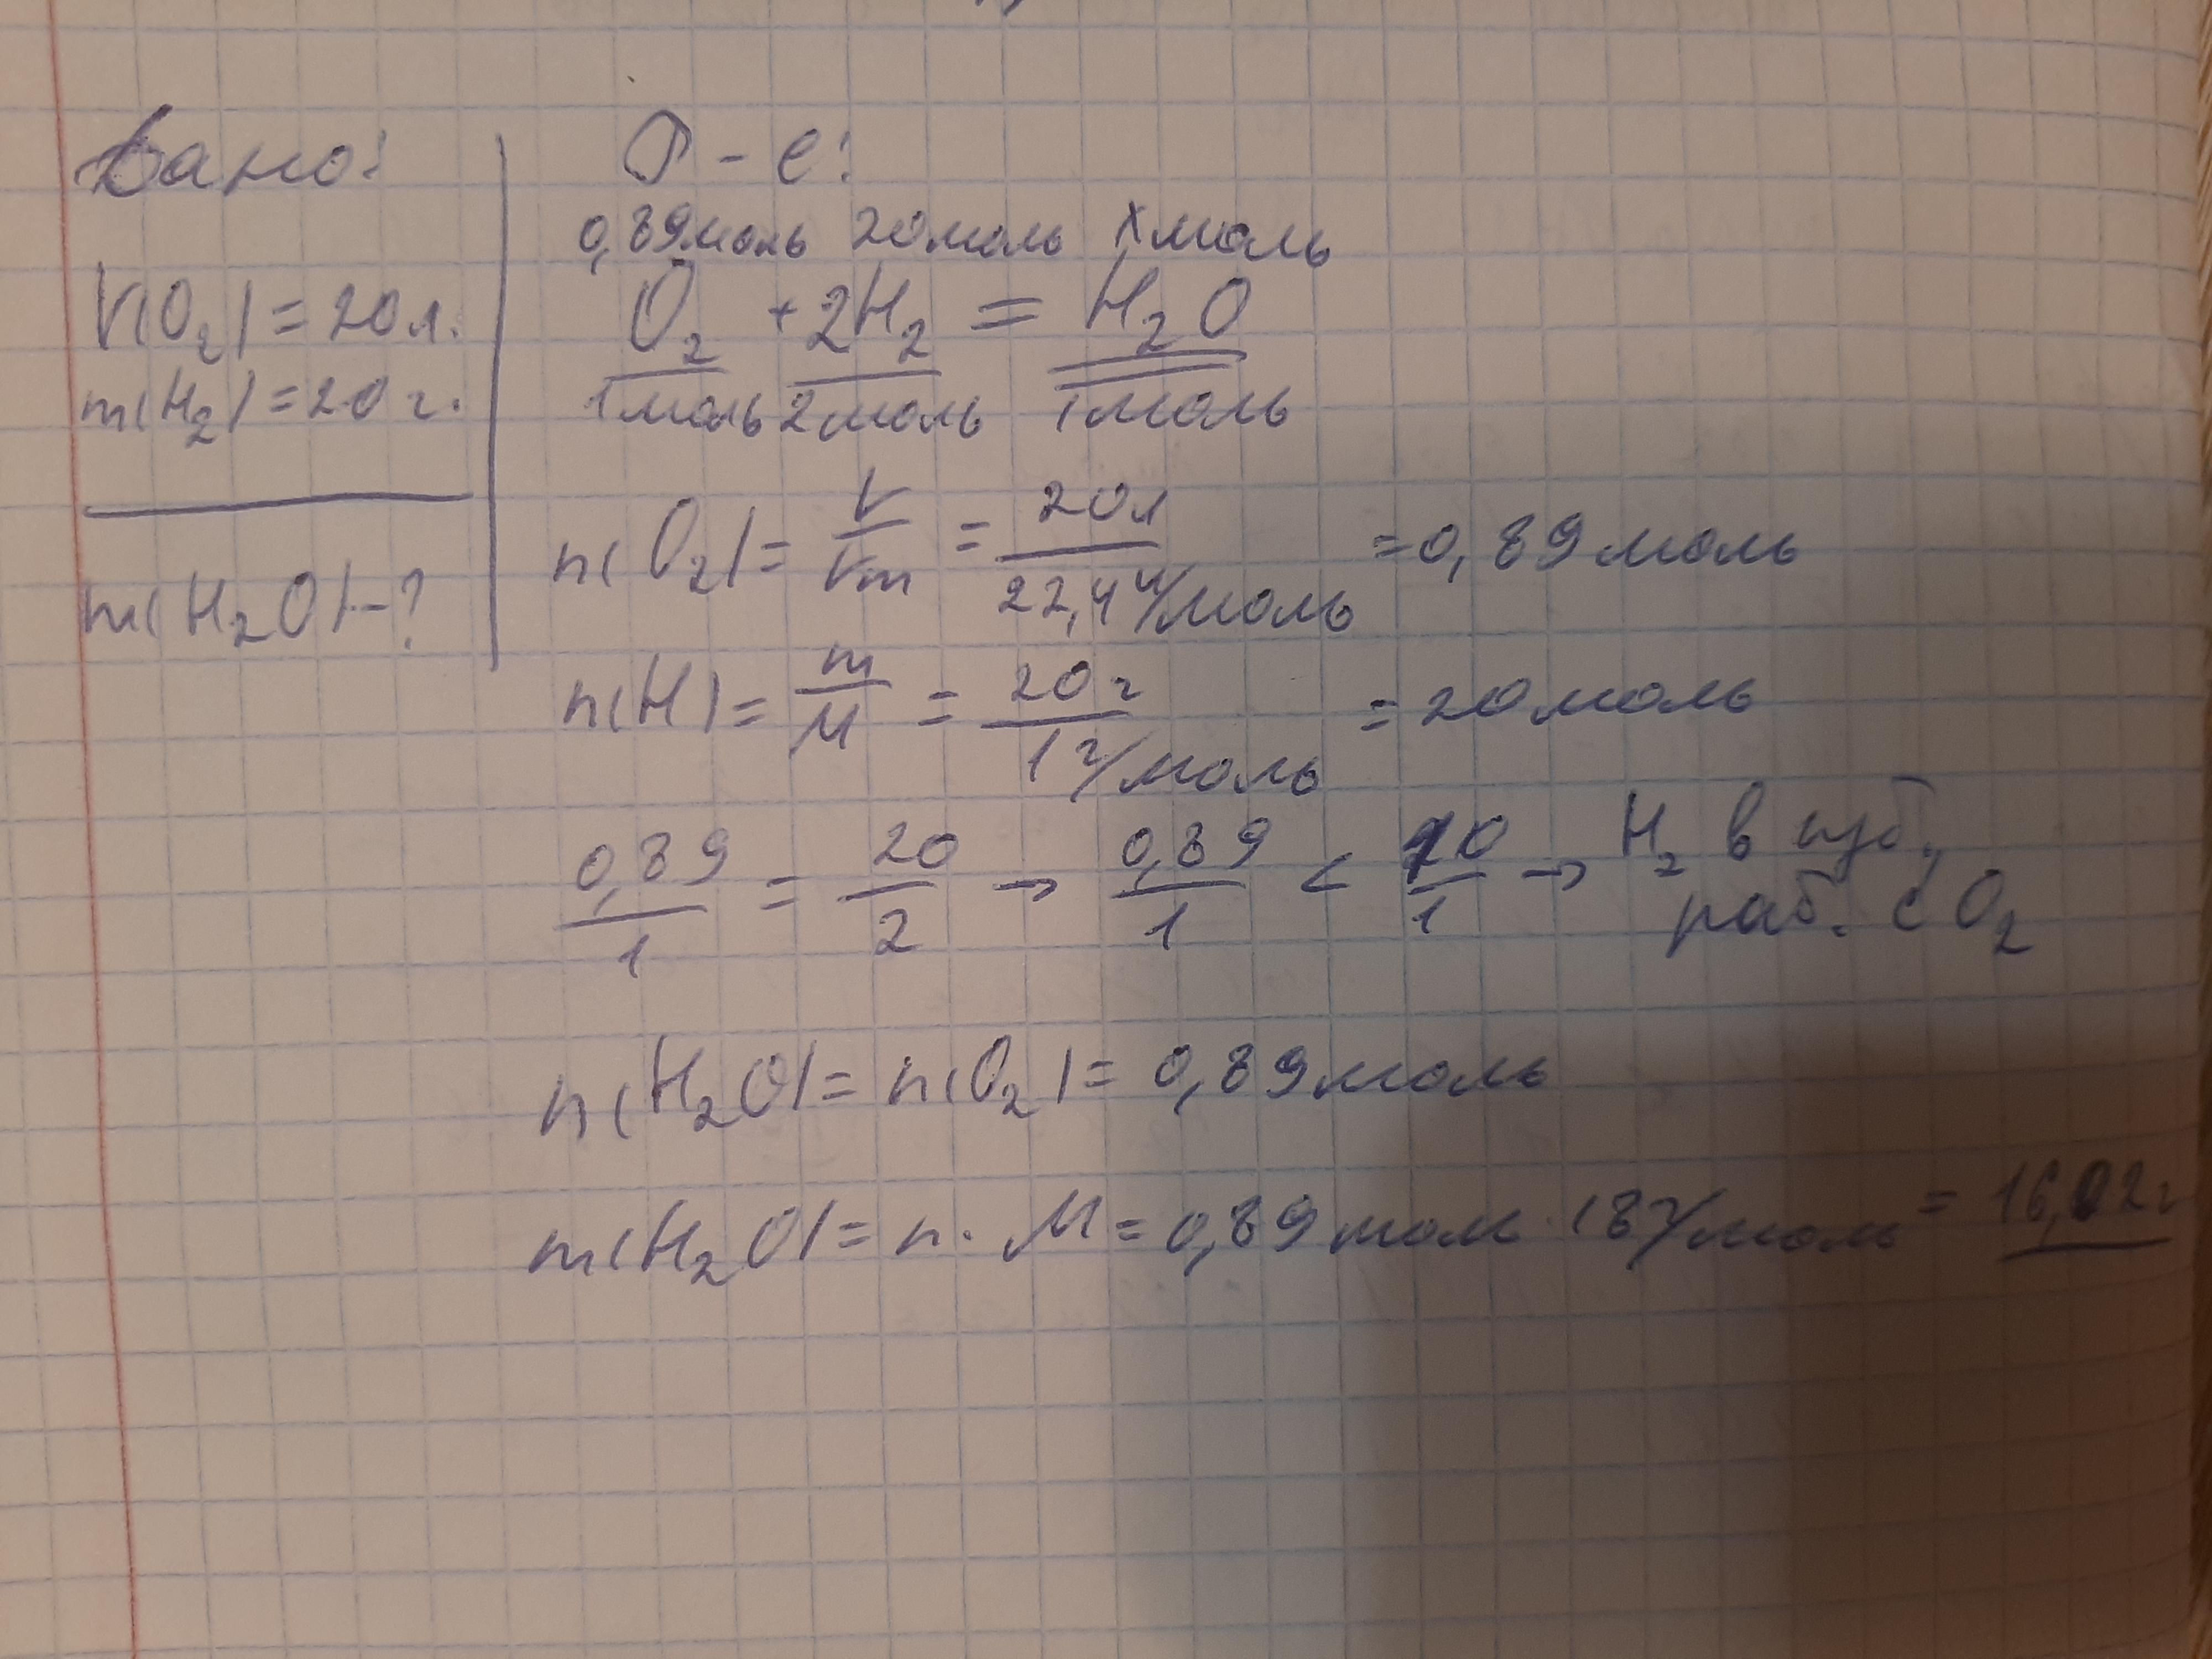 Дано:
V(O₂) = 20 л.
m(H₂) = 20 г.
m(H₂O) - ?
Р-е:
0,89 моль 20 моль x моль
O₂ + 2H₂ = H₂O
1 моль 2 моль 1 моль
n(O₂) = V/Vm = 20 л/22,4 л/моль = 0,89 моль
n(H) = m/M = 20 г/1 г/моль = 20 моль
0,89/1 = 20/2 → 0,89/1 < 10/1 → H₂ в изб.,
раб. с O₂
n(H₂O) = n(O₂) = 0,89 моль
m(H₂O) = n · M = 0,89 моль · 18 г/моль = 16,02 г